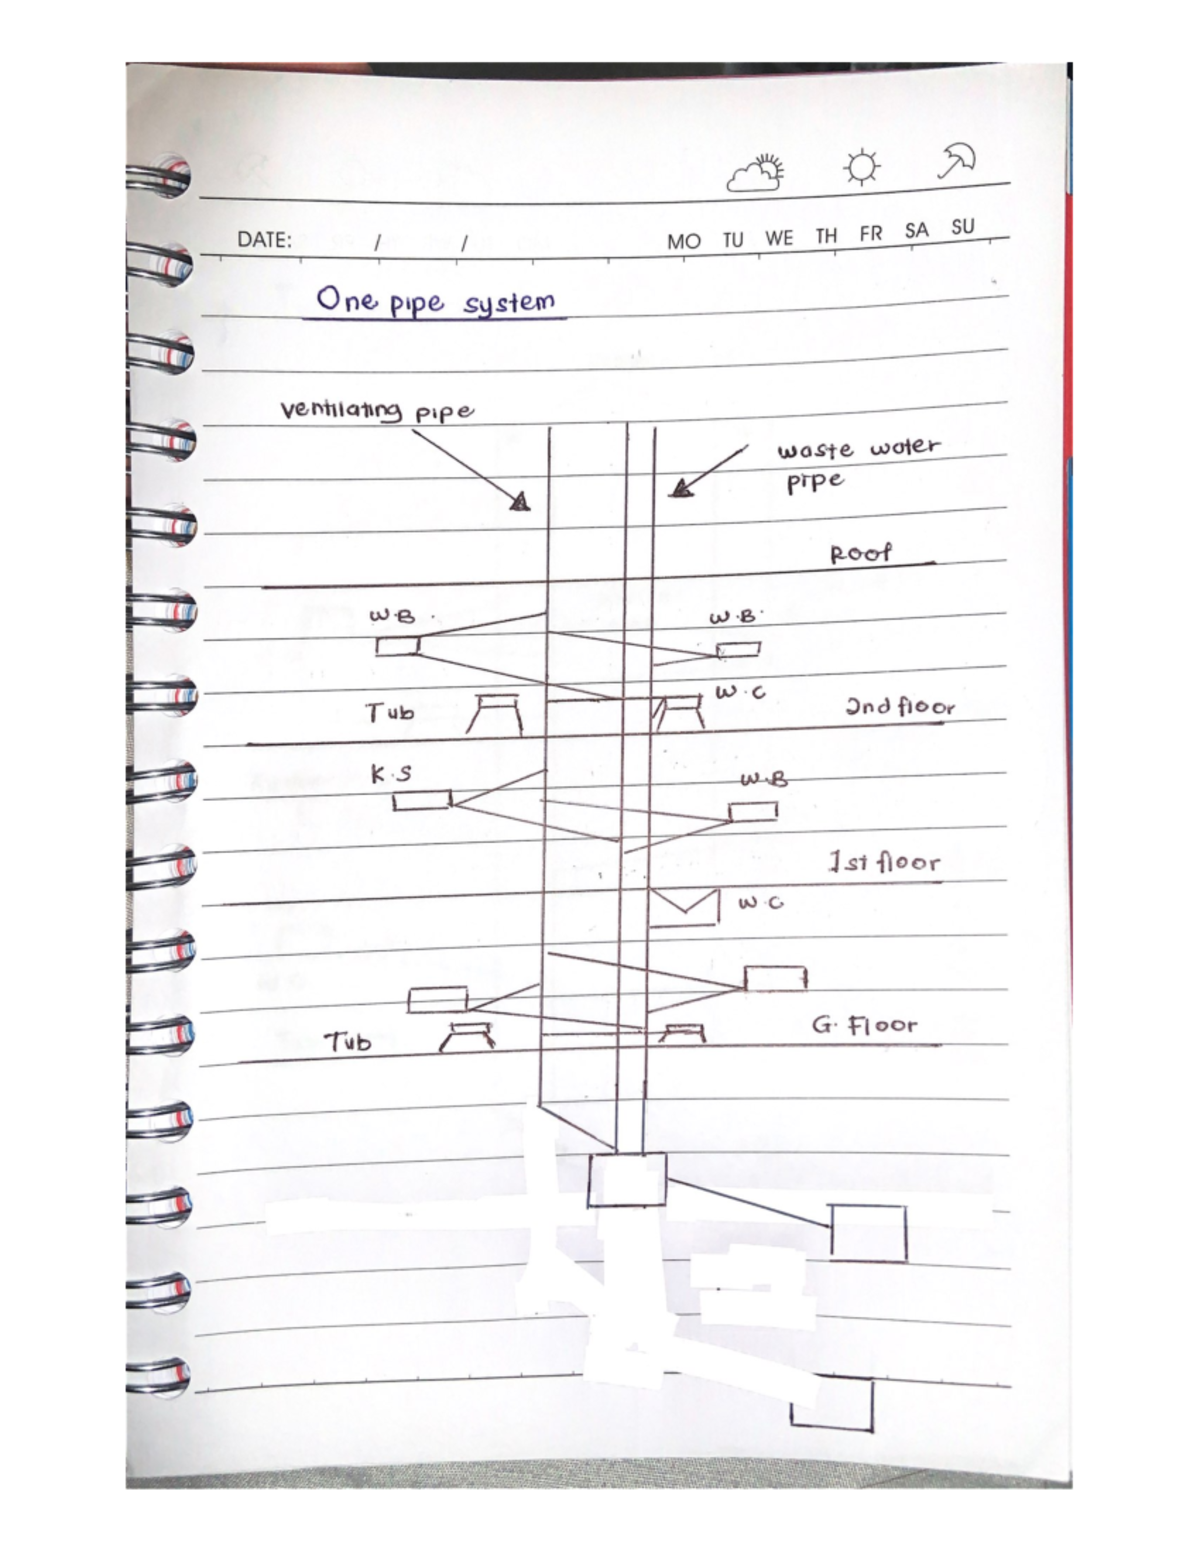 DATE: / / MO TU WE TH FR SA SU
One pipe system
ventilating pipe
waste water
pipe
Roof
W.B.
W.B.
Tub
W.C
2nd floor
K.S
W.B
1st floor
W.C
G. Floor
Tub